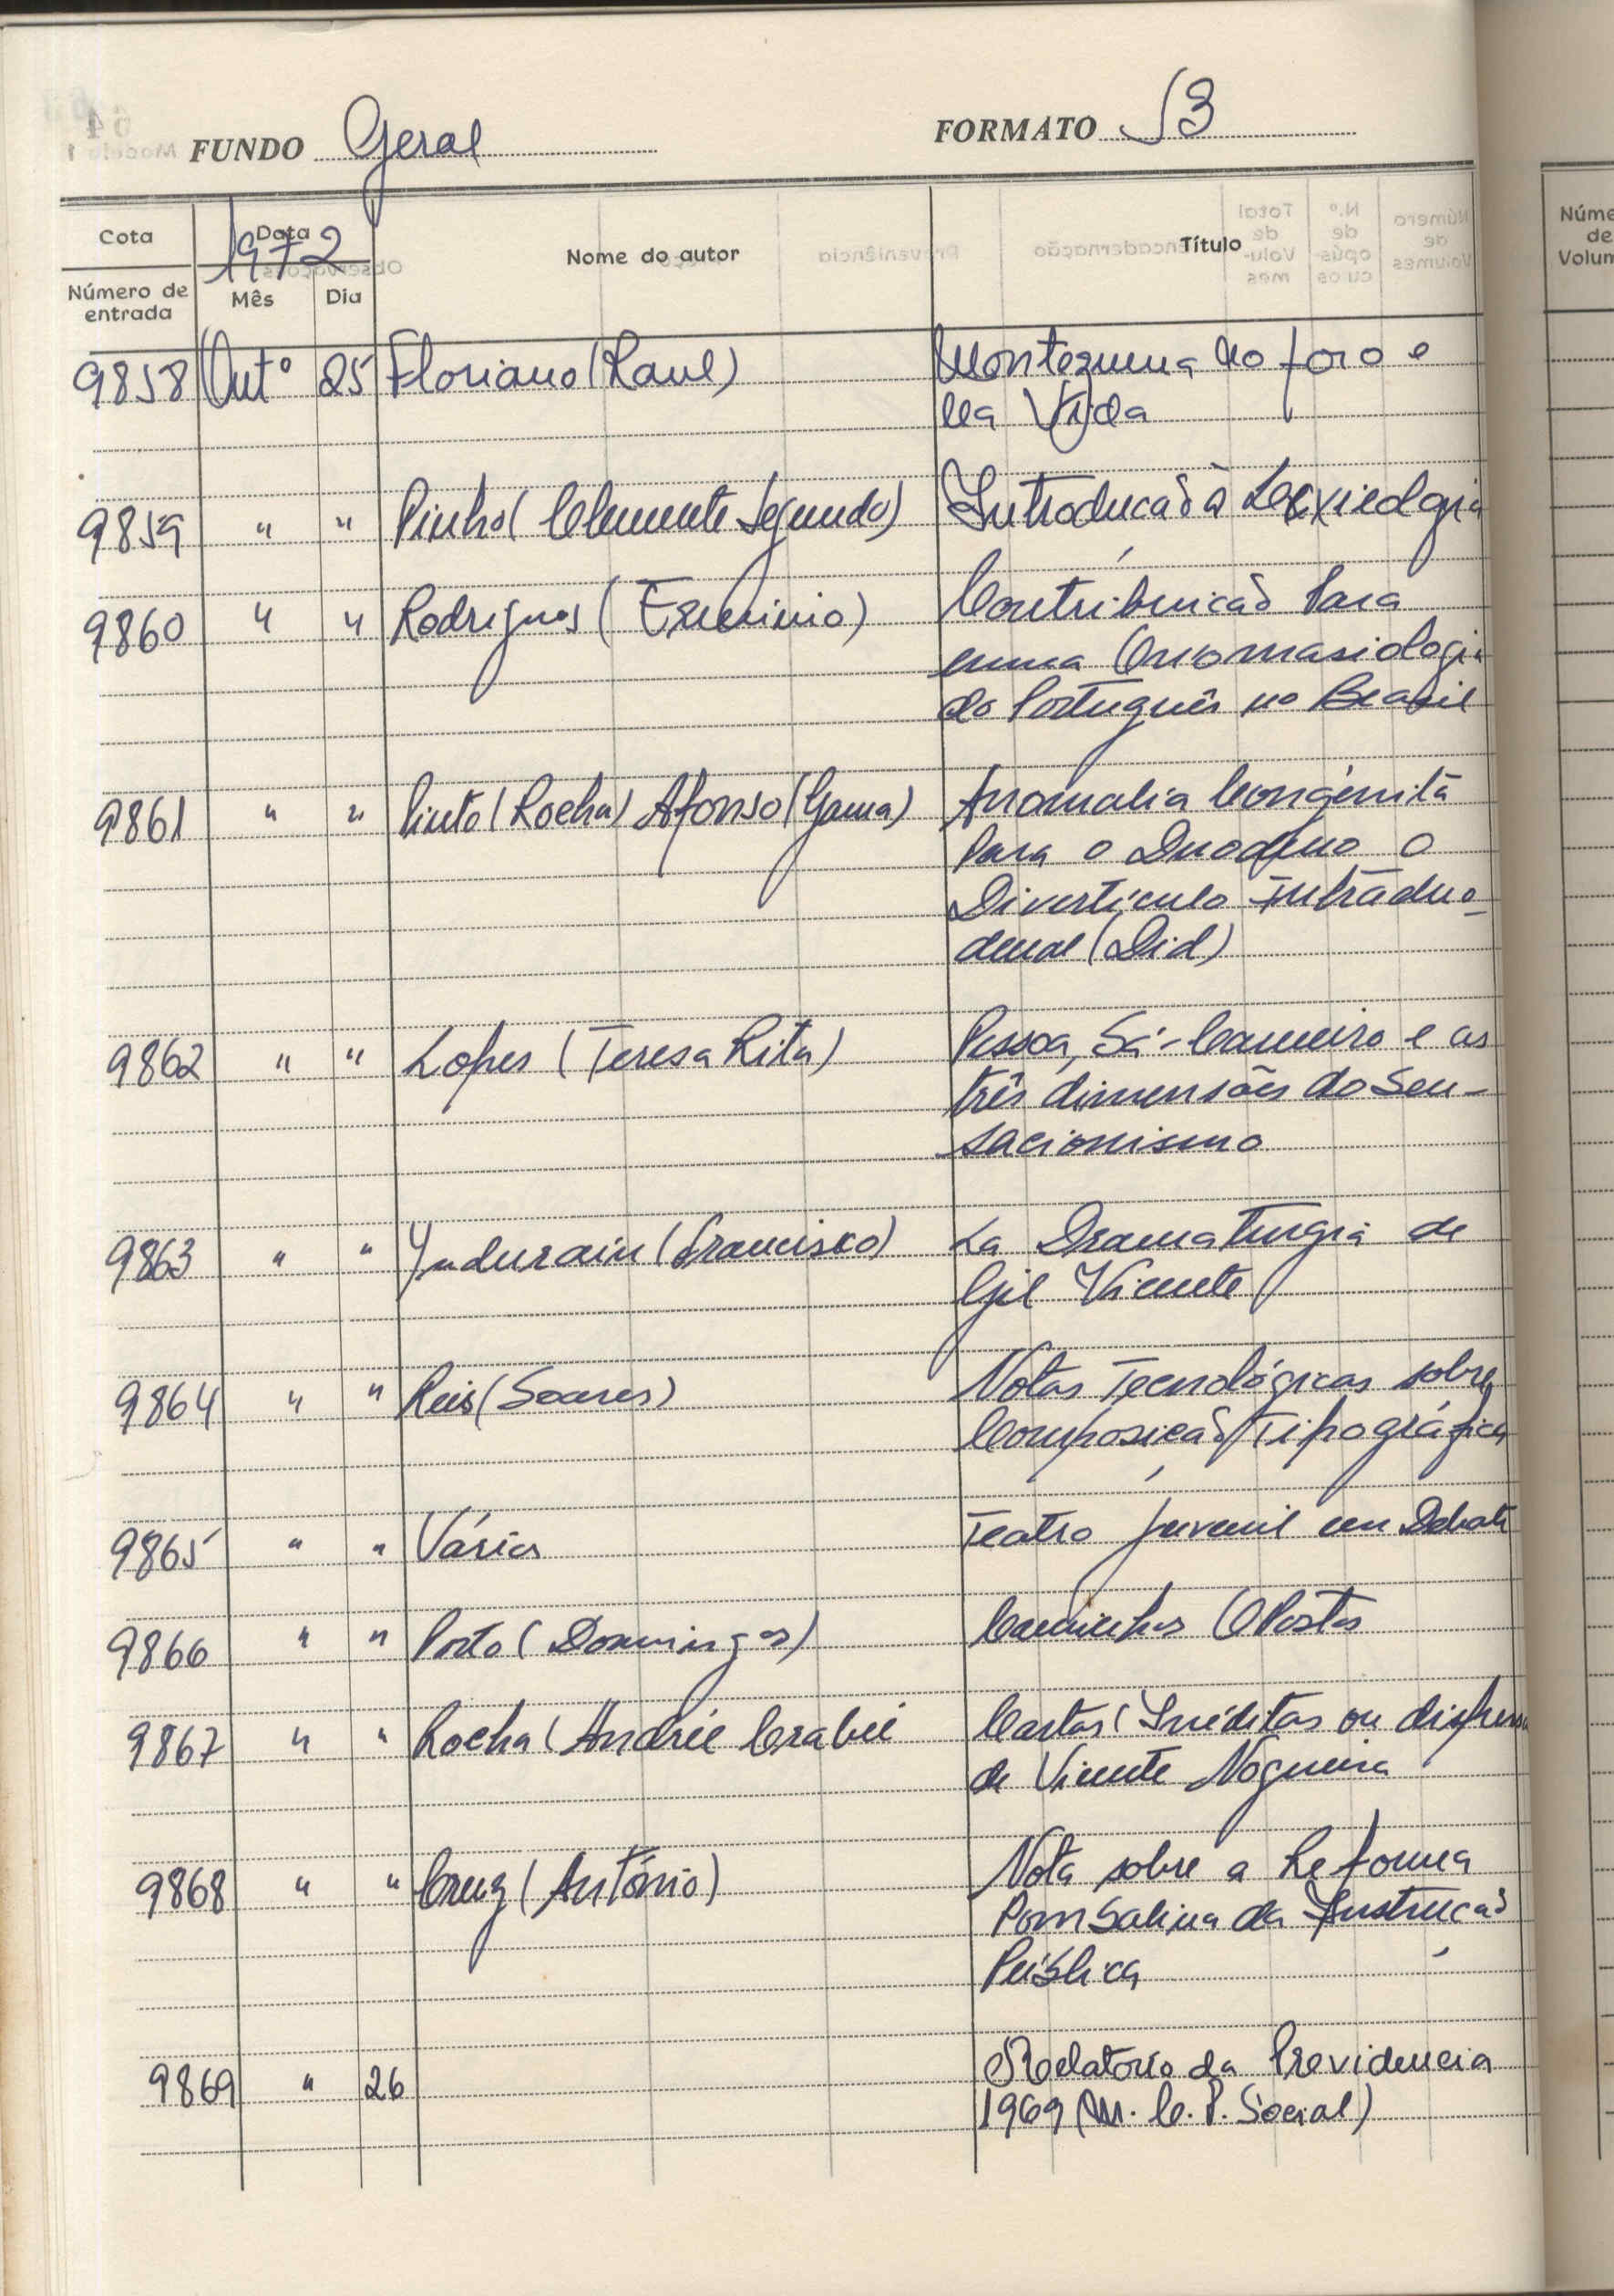 FUNDO Geral FORMATO J3
Cota Data Nome do autor Título
1972
Número de entrada Mês Dia
9858 Outº 25 Floriano (Raul) Montezuma no foro e
na Vida
9859 " " Pinho (Clemente Segundo) Introdução à Lexicologia
9860 " " Rodrigues ( ) Contribuição Para
uma Onomasiologia
do Português no Brasil
9861 " " Pinto (Rocha) Afonso (Gama) Anomalia Congénita
Para o Duodeno O
Divertículo Intraduo-
denal (Did)
9862 " " Lopes (Teresa Rita) Pessoa, Sá-Carneiro e as
três dimensões do Sen-
sacionismo
9863 " " Yndurain (Francisco) La Dramaturgia de
Gil Vicente
9864 " " Reis (Soares) Notas Tecnológicas sobre
Composição Tipográfica
9865 " " Vários Teatro Juvenil em Debate
9866 " " Porto (Domingos) Caminhos Opostos
9867 " " Rocha (Andrée Crabbé Cartas (Inéditas ou dispersas
de Vicente Nogueira
9868 " " Cruz (António) Nota sobre a Reforma
Pombalina da Instrução
Pública
9869 " 26 Relatorio da Previdencia
1969 (M. C. P. Social)
Núme
de
Volum